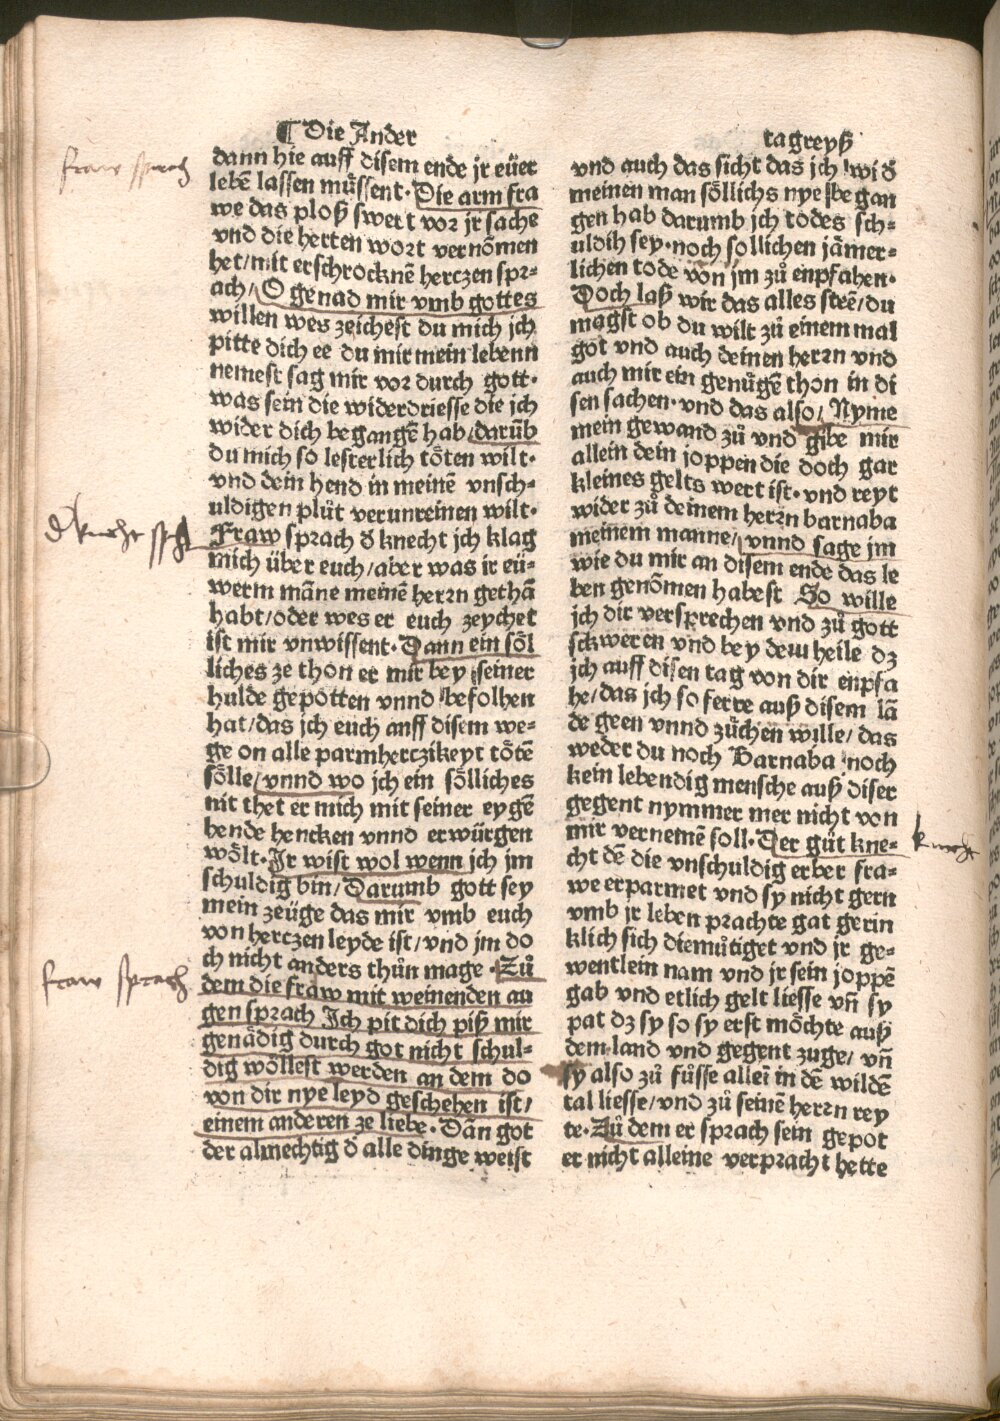 ¶ Die Ander
tagreyß
dann hie auff disem ende jr eüer
lebē lassen müssent· Die arm fra
we das ploß swert vor jr sache
vnd die herten wort vernōmen
het/mit erschrocknē herczen spr⸗
ach/ O genad mir vmb gottes
willen wes zeichest du mich jch
pitte dich ee du mir mein lebenn
nemest sag mir vor durch gott·
was sein die widerdriesse die jch
wider dich begangē hab/darūb
du mich so lesterlich töten wilt·
vnd dein hend in meinē vnsch⸗
uldigen plůt verunreinen wilt·
Fraw sprach đ knecht jch klag
mich über euch/aber was ir eü⸗
werm māne meinē herrn gethā
habt/oder wes er euch zeychet
ist mir vnwissent· Dann ein söl
liches ze thon er mir bey seiner
hulde gepotten vnnd befolhen
hat/das jch euch anff disem we⸗
ge on alle parmherczikeyt tötē
sölle/vnnd wo jch ein sölliches
nit thet er mich mit seiner eygē
hende hencken vnnd erwürgen
wölt· Ir wist wol wenn jch jm
schuldig bin/Darumb gott sey
mein zeüge das mir vmb euch
von herczen leyde ist/vnd jm do
ch nicht anders thůn mage · Zů
dem die fraw mit weinenden au
gen sprach Ich pit dich piß mir
genädig durch got nicht schul⸗
dig wöllest werden an dem do
von dir nye leyd geschehen ist/
einem anderen ze liebe· Dān got
der almechtig đ alle dinge weist
vnd auch das sicht das jch wiđ
meinen man söllichs nye began
gen hab darumb jch todes sch⸗
uldih sey·noch sollichen jämer⸗
lichen tode von jm zů enpfahen·
Doch laß wir das alles steē/du
magst ob du wilt zů einem mal
got vnd auch deinen herrn vnd
auch mir ein genügē thon in di
sen sachen· vnd das also/ Nyme
mein gewand zů vnd gibe mir
allein dein joppen die doch gar
kleines gelts wert ist· vnd reyt
wider zů deinem herrn barnaba
meinem manne/vnnd sage jm
wie du mir an disem ende das le
ben genōmen habest So wille
jch dir versprechen vnd zů gott
schweren vnd bey dem heile dz
jch auff disen tag von dir enpfa
he/das jch so ferre auß disem lā
de geen vnnd züchen wille/ das
weder du noch Barnaba noch
kein lebendig mensche auß diser
gegent nymmer mer nicht von
mir vernemē soll· Der gůt kne⸗
cht dē die vnschuldig erber fra⸗
we erparmet vnd sy nicht gern
vmb jr leben prachte gat gerin
klich sich diemůtiget vnd jr ge⸗
wentlein nam vnd jr sein joppē
gab vnd etlich gelt liesse vn̄ sy
pat dz sy so sy erst möchte auß
dem land vnd gegent zuge/ vn̄
sy also zů fůsse alleī in dē wildē
tal liesse/vnd zů seinē herrn rey
te· Zů dem er sprach sein gepot
er nicht alleine verpracht hette
fraw sprach
đ knecht spch
fraw sprach
knecht